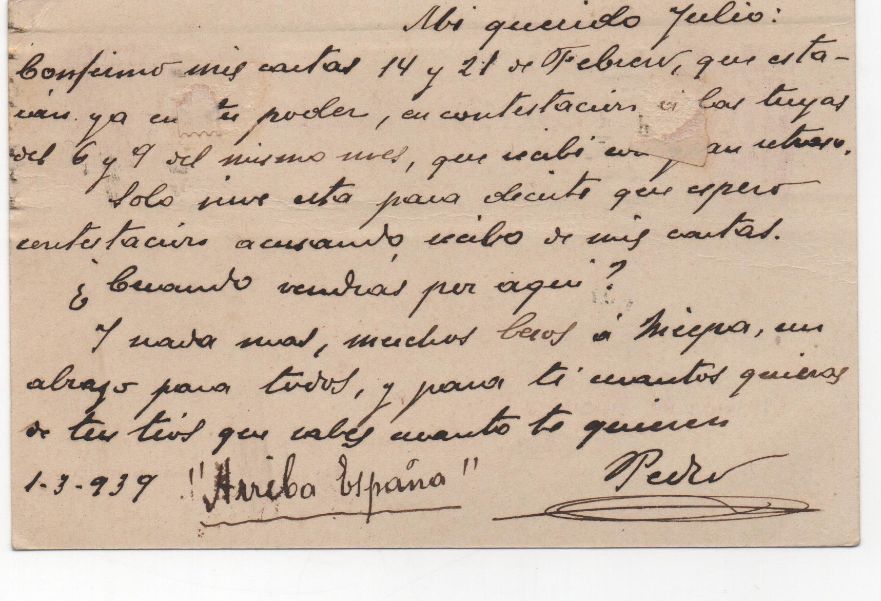 Mi querido Julio:
Confirmo mis cartas 14 y 21 de Febrero, que esta-
rán ya en tu poder, en contestación á las tuyas
del 6 y 9 del mismo mes, que recibí con gran retraso.
Solo sirve esta para decirte que espero
contestación acusando recibo de mis cartas.
¿Cuando vendrás por aquí?
Y nada mas, muchos besos á, un
abrazo para todos, y para ti cuantos quieras
de tus tios que sabes cuanto te quieren
Pedro
1-3-939 "Arriba España"